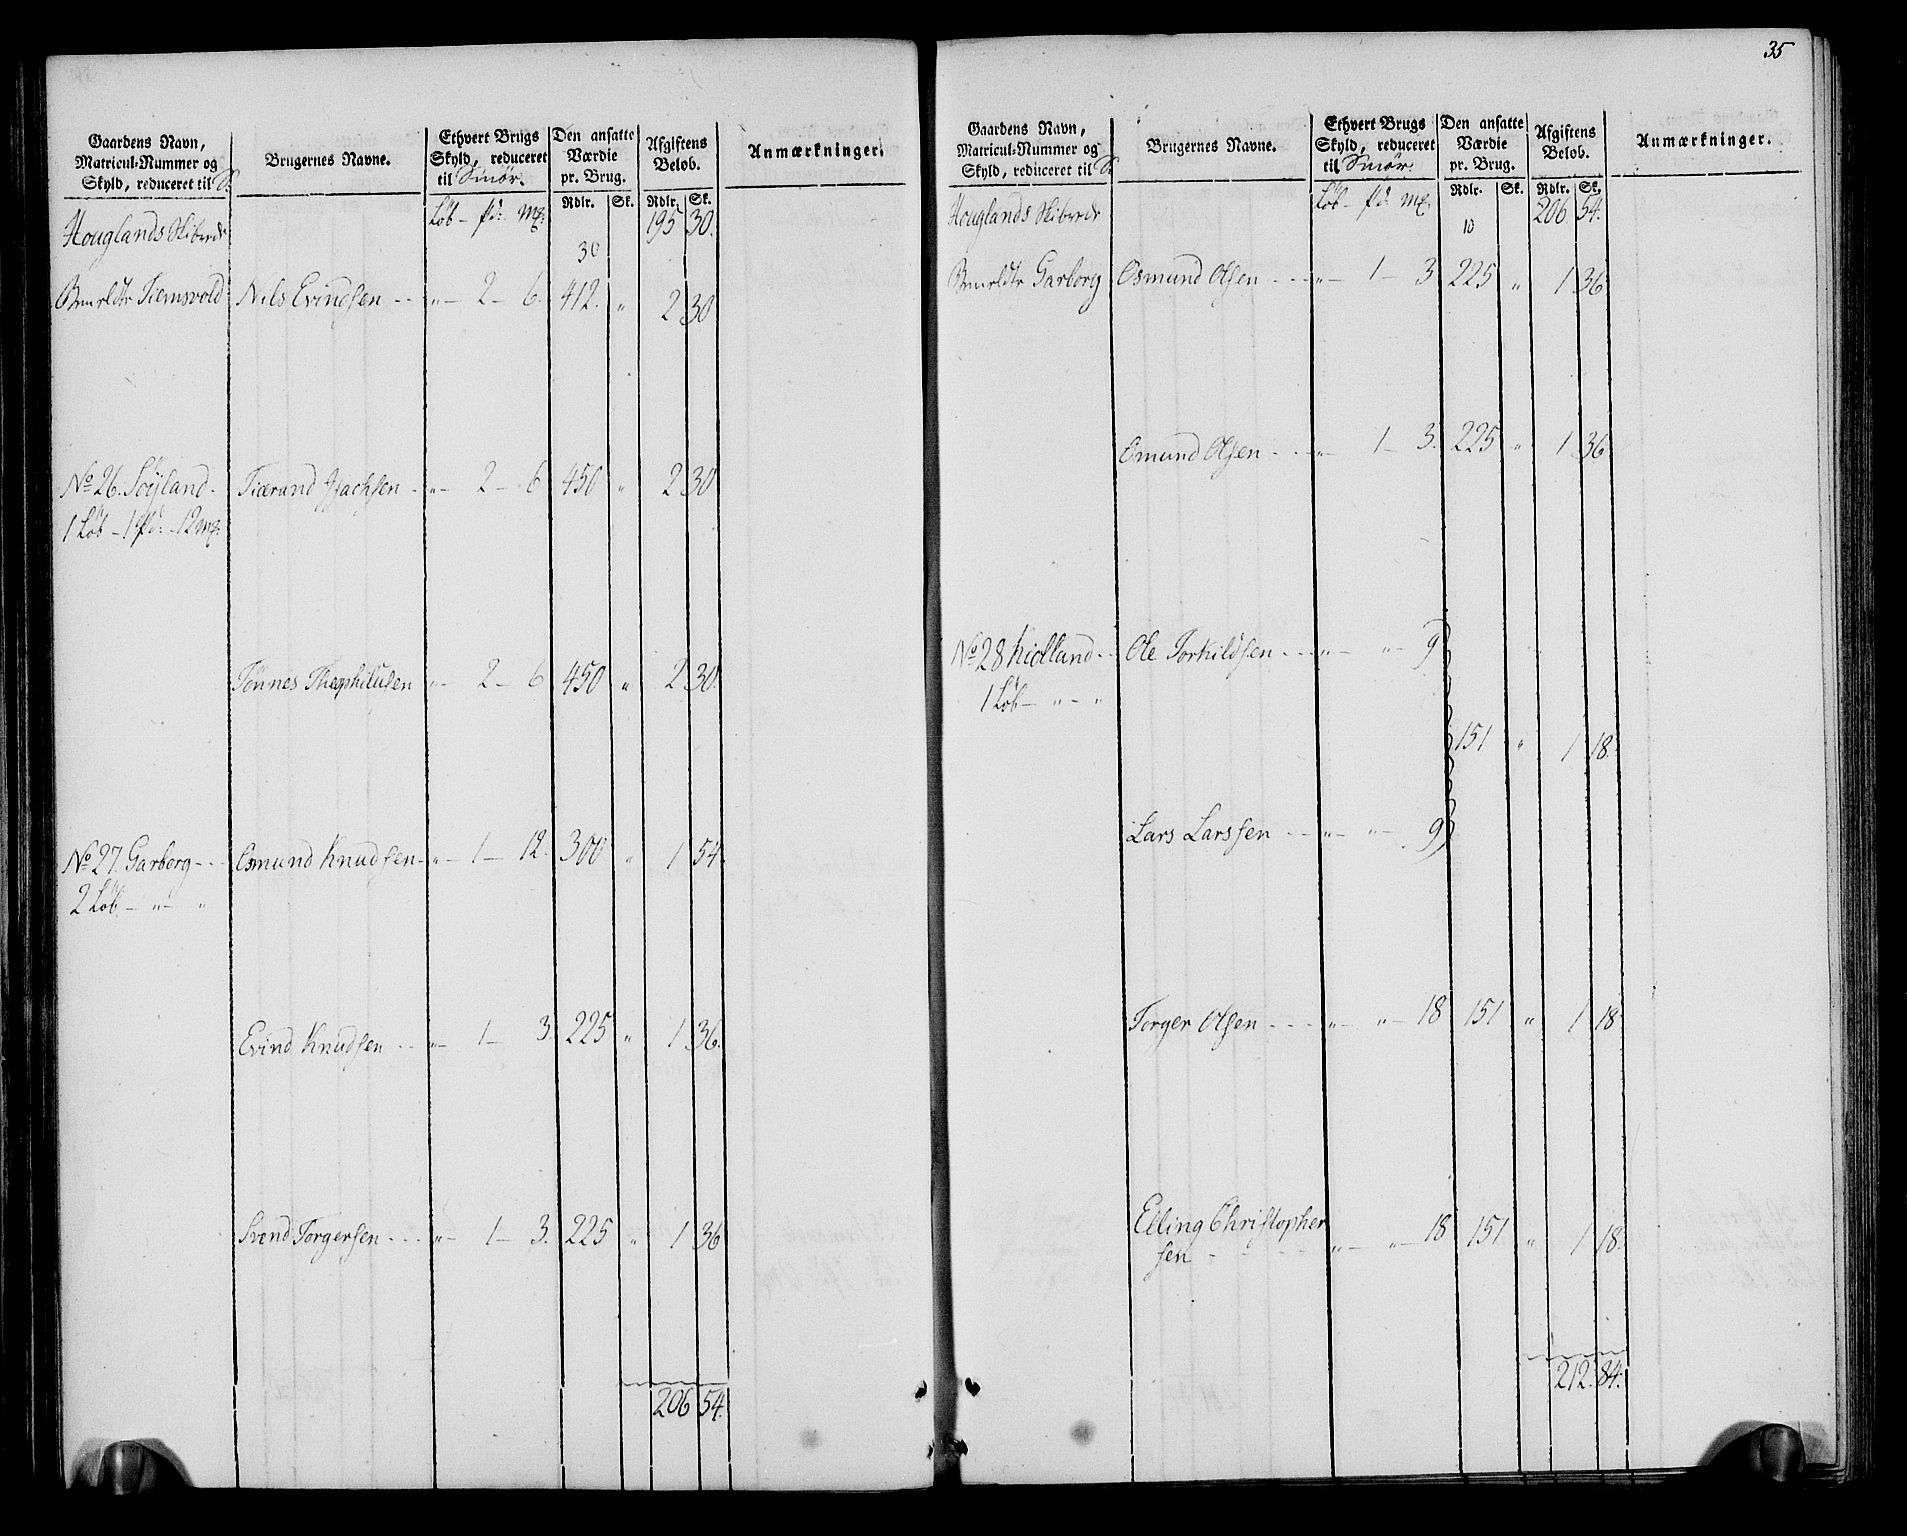 35
Gaardens Navn,
Matricul-Nummer og
Skyld, reduceret til S.
Brugernes Navne.
Ethvert Brugs
Skyld, reduceret
til Smör.
Den ansatte
Værdie
pr. Brug.
Afgiftens
Belob.
Anmærkninger.
Rdlr. Sk. Rdlr. Sk.
Houglands Skibrede Löb - pd: mg: 195 30.
30
Tiemsvold Nils Evindsen - - " - 2 - 6. 412. " 2 30
No 26. Söyland. Tiærand Isachsen - " - 2 - 6 450 " 2 30
1 Löb - 1 pd: - 12 mg:
Tönnes Theophilusen " - 2 - 6 450 " 2 30.
No 27. Garborg - - Osmund Knudsen - " - 1 - 12. 300 " 1 54
2 Löb - " - "
Evind Knudsen - - " - 1 - 3. 225 " 1 36.
Svend Torgersen - - " - 1 - 3. 225 " 1 36
206 54.
Gaardens Navn,
Matricul-Nummer og
Skyld, reduceret til S.
Brugernes Navne.
Ethvert Brugs
Skyld, reduceret
til Smör.
Den ansatte
Værdie
pr. Brug.
Afgiftens
Belob.
Anmærkninger.
Rdlr. Sk. Rdlr. Sk.
Houglands Skibrede Löb - pd: mg: 206 54.
10
Garborg Osmund Olsen - - - " - 1 - 3 225 " 1 36
Omund Olsen - - - " - 1 - 3. 225 " 1 36
No 28 Kiolland - - Ole Torkildsen - - - " - " - 9
1 Löb - " - "
151 " 1 18.
Lars Larssen - - - " - " - 9
Torger Olsen - - - " - " - 18 151 " 1 18
Elling Christopher
sen - - - - " - " - 18 151 " 1 18.
212. 84.